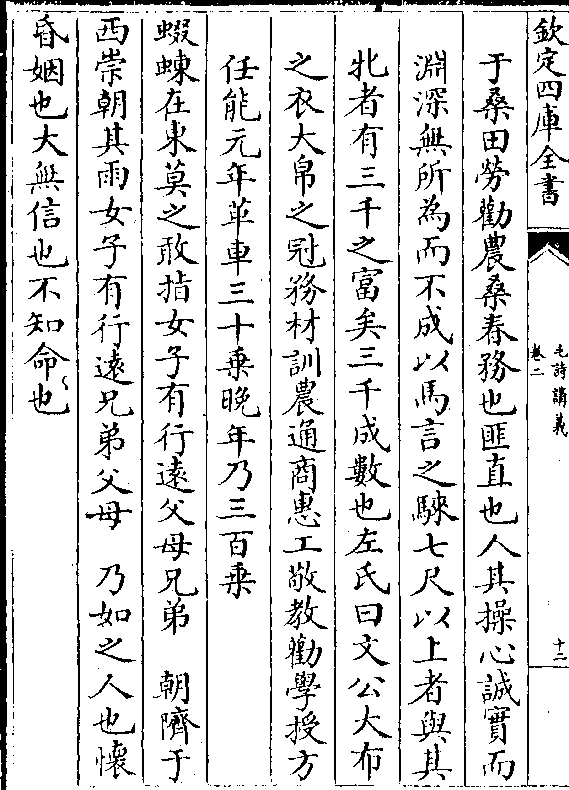 欽定四庫全書
毛詩講義
卷二
十二
于桑田勞勸農桑春務也匪直也人其操心誠實而
淵深無所為而不成以馬言之騋七尺以上者與其
牝者有三千之富矣三千成數也左氏曰文公大布
之衣大帛之冠務材訓農通商惠工敬教勸學授方
任能元年革車三十乗晚年乃三百乗
蝃蝀在東莫之敢指女子有行逺父母兄弟　朝隮于
西崇朝其雨女子有行逺兄弟父母　乃如之人也懷
昏姻也大無信也不知命也